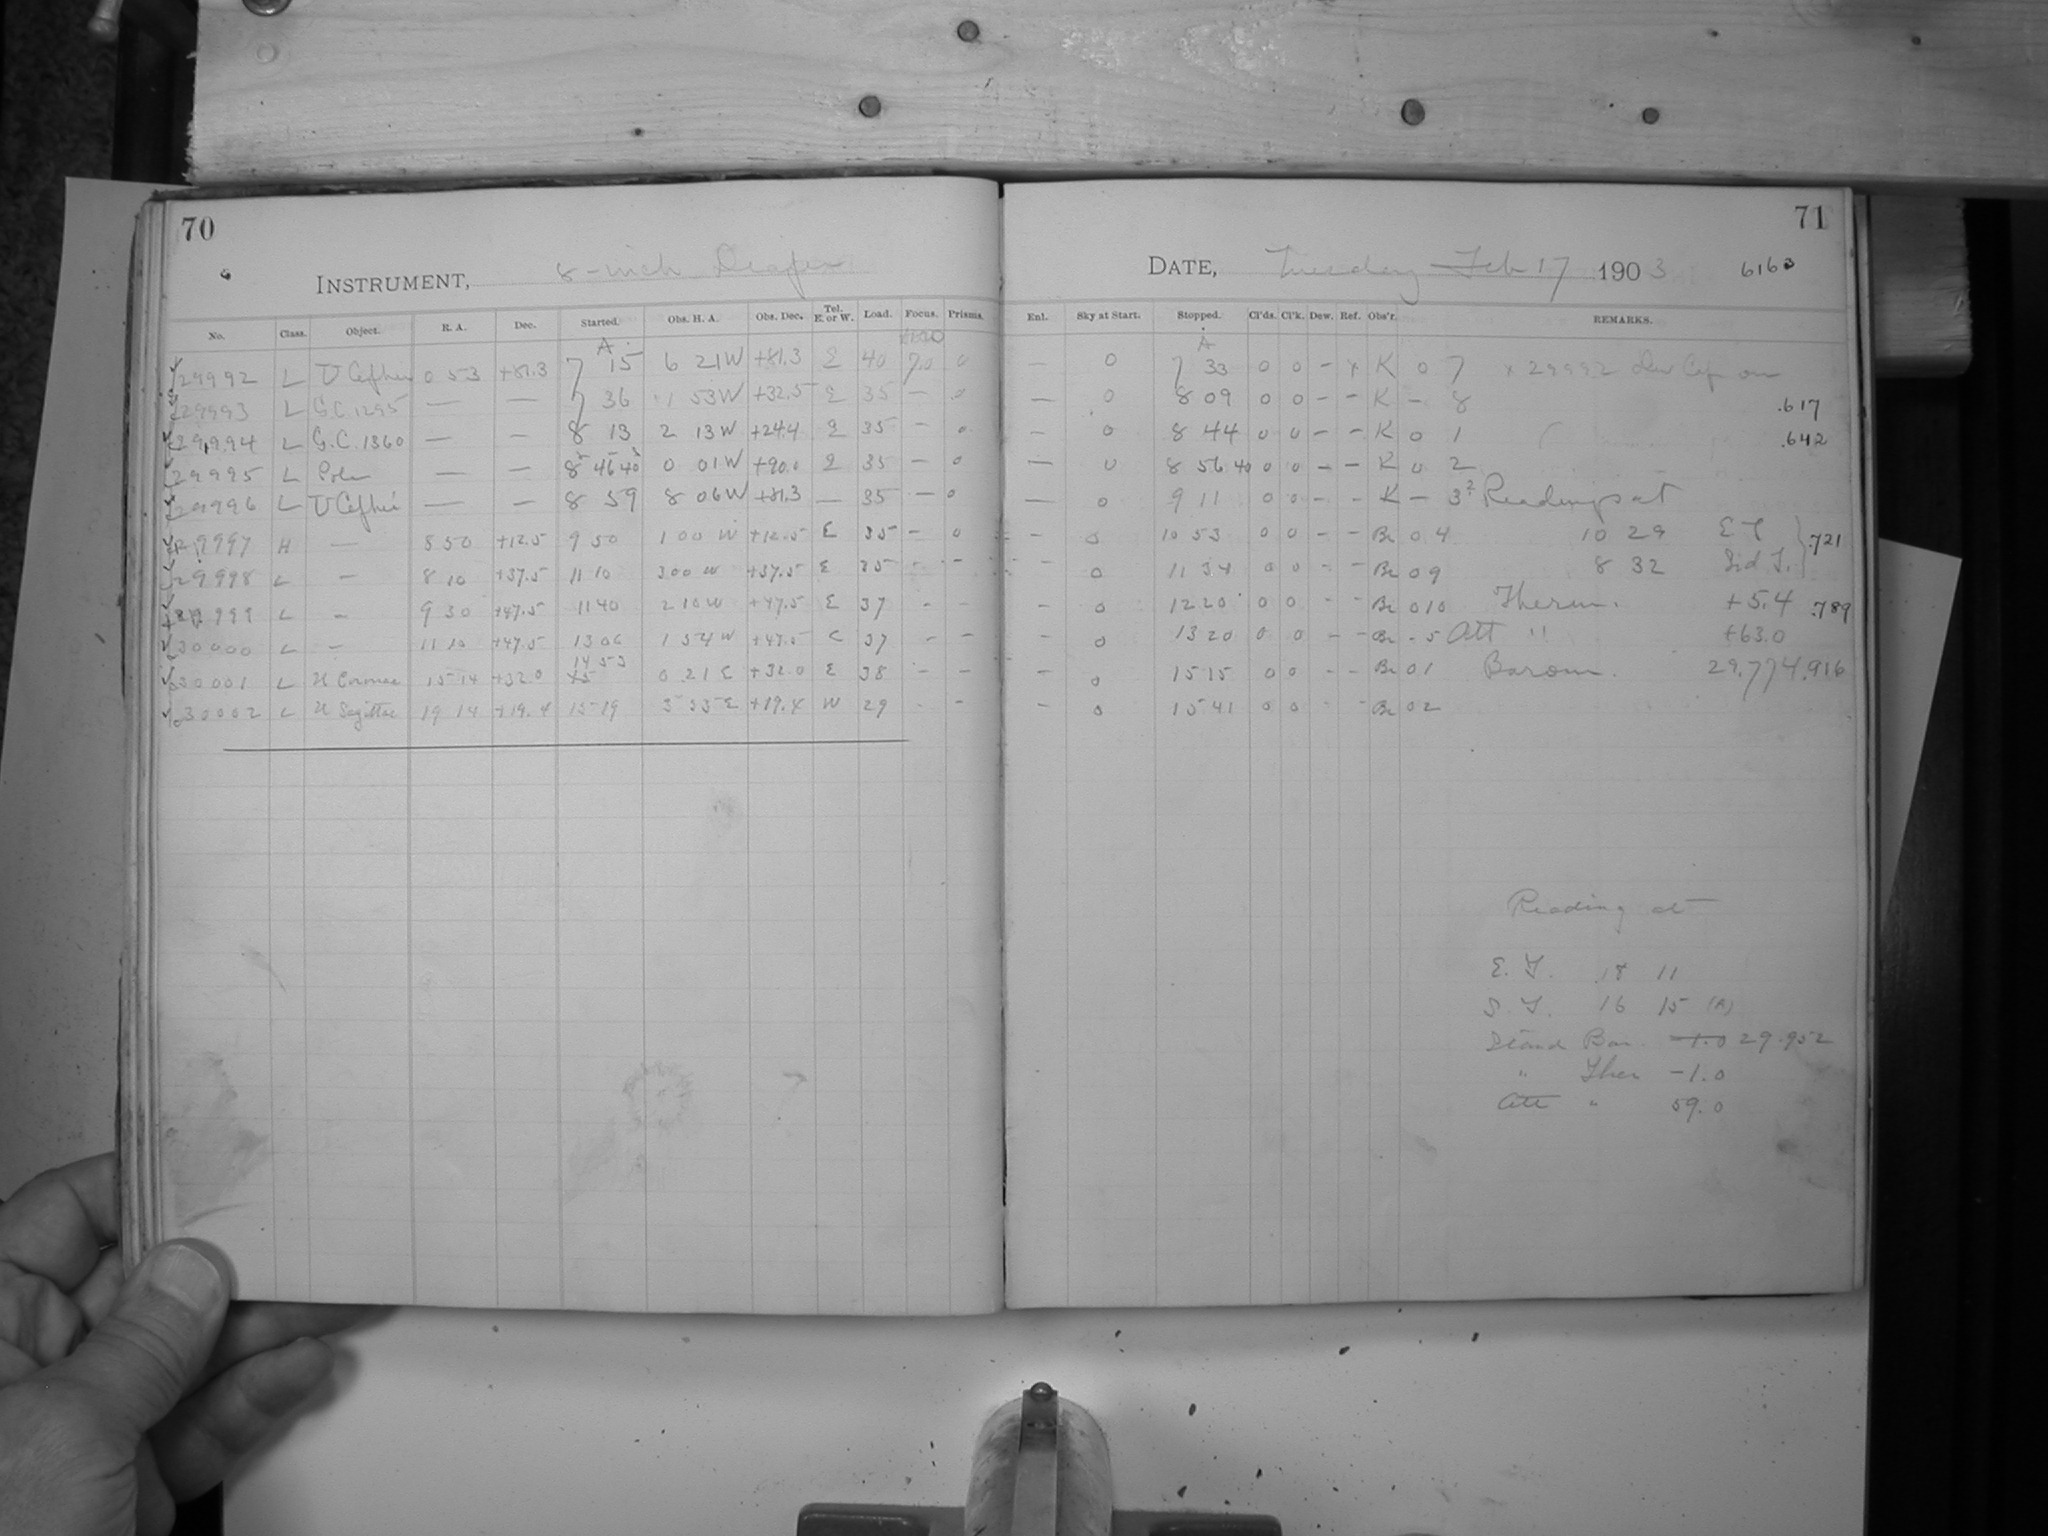 70
INSTRUMENT, 8-inch Draper
No. Class. Object. R. A. Dec. Started. Obs. H. A. Obs. Dec. Tel. E. or W. Load. Focus. Prisms.
A.
29992 L U Cephei 0 53 +81.3 7 15 6 21 W +81.3 E 40 7.0 0
29993 L G.C. 1295 — — 7 36 1 53 W +32.5 E 35 — 0
29994 L G.C. 1360 — — 8 13 2 13 W +24.4 E 35 — 0
29995 L Pole — — 8 46 40 0 01 W +90.0 E 35 — 0
29996 L U Cephei — — 8 59 8 06 W +81.3 — 35 — 0
29997 H — 8 50 +12.5 9 50 1 00 W +12.5 E 35 — 0
29998 L — 8 10 +37.5 11 10 3 00 W +37.5 E 35 - -
29999 L — 9 30 +47.5 11 40 2 10 W +47.5 E 37 - -
30000 L — 11 10 +47.5 13 06 1 54 W +47.5 E 37 - -
14 53
30001 L U Coronae 15 14 +32.0 15 0 21 E +32.0 E 38 - -
30002 L U Sagittae 19 14 +19.4 15 19 3 55 E +19.4 W 29 - -
71
DATE, Tuesday Feb 17 1903 6163
Enl. Sky at Start. Stopped. Cl'ds. Cl'k. Dew. Ref. Obs'r. REMARKS.
A
— 0 7 33 0 0 - x K 0 7 x 29992 Dew Cap on
— 0 8 09 0 0 - - K - 8 .617
— 0 8 44 0 0 - - K 0 1 .642
— 0 8 56 40 0 0 - - K 0 2
— 0 9 11 0 0 - - K - 3 Readings at
— 0 10 53 0 0 - - Be 0 4 10 29 E T .721
— 0 11 34 0 0 - - Be 0 9 8 32 Sid T.
— 0 12 20 0 0 - - Be 0 10 Therm. +5.4 .789
— 0 13 20 0 0 - - Be - 5 Att " +63.0
— 0 15 15 0 0 - - Be 0 1 Barom. 29.774 .916
— 0 15 41 0 0 - - Be 0 2
Reading at
E. T. 18 11
S. T. 16 15 (A)
Stand Bar. -1.0 29.952
" Ther -1.0
Att " 59.0